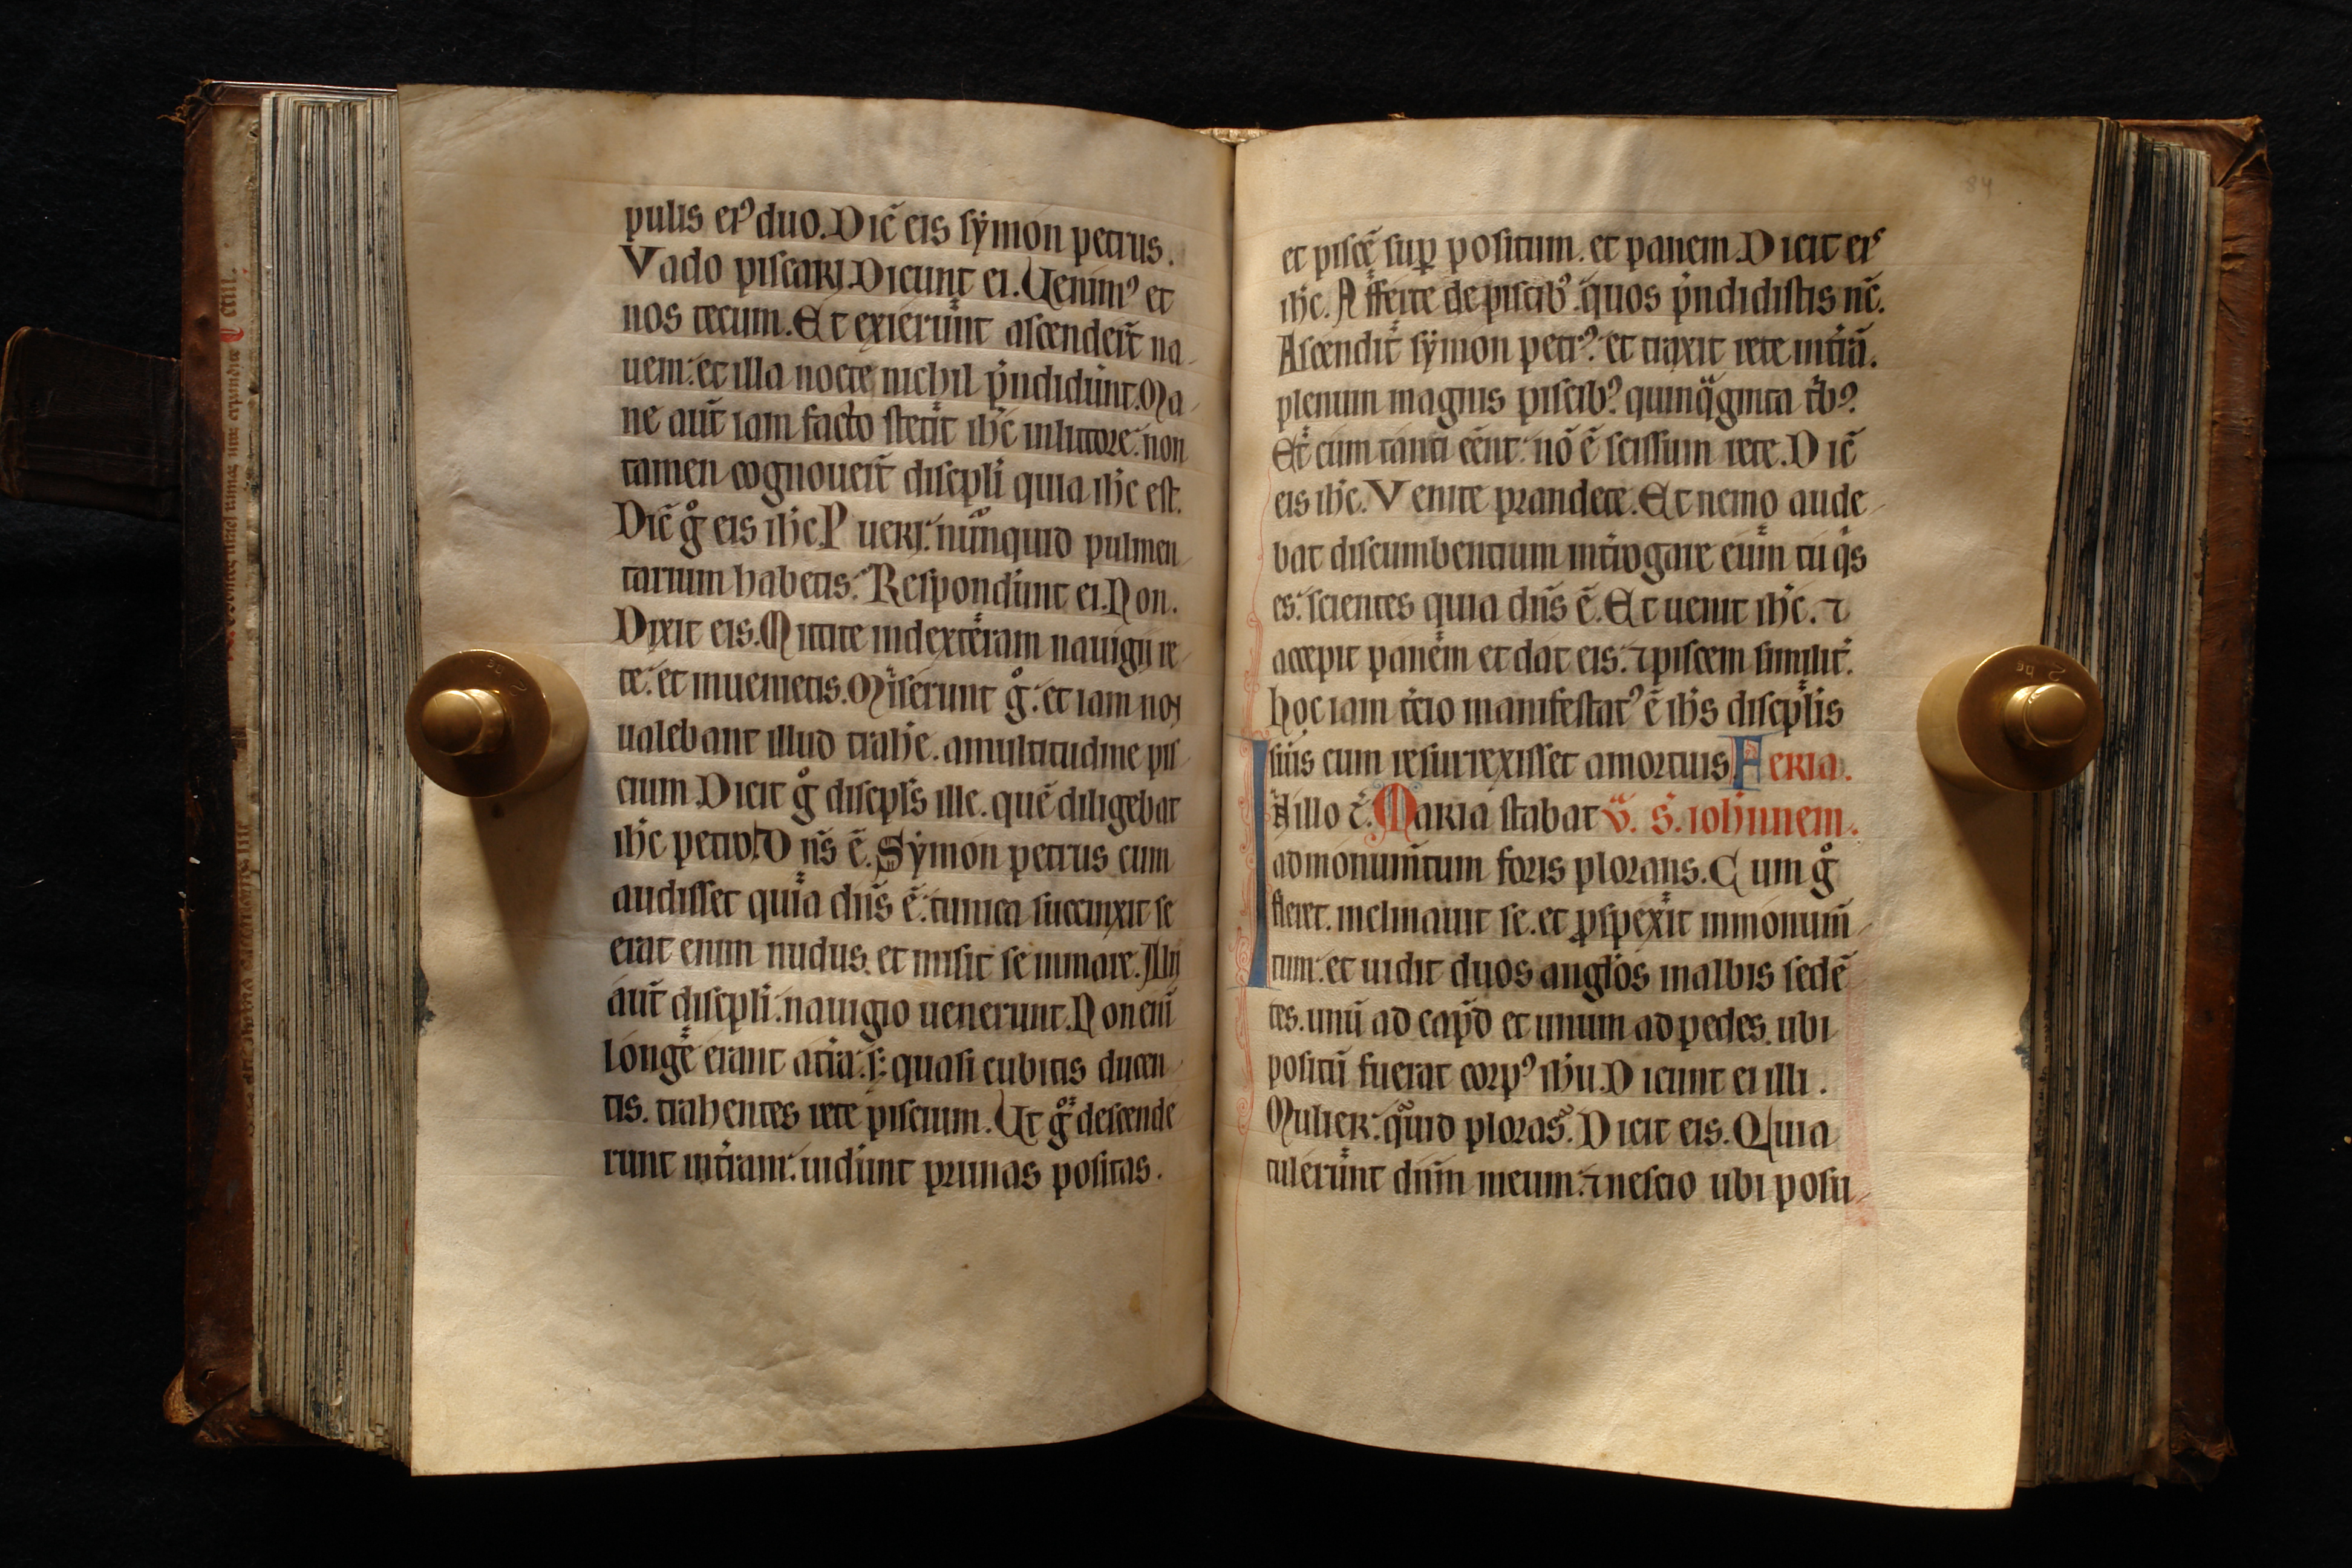 pulis ei⁹ duo. Dic̄ eis sẏmon petrus.
Vado piscari. Dicunt ei. Uenim⁹ et
nos tecum. Et exierunt ascender̄t na-
uem: et illa nocte nichil p̄ndidunt. Ma-
ne aut̄ iam facto stetit ih̄c in littore: non
tamen cognouer̄t discipli quia ih̄c est.
Dic̄ gͦ eis ih̄c. Pueri: nūnquid pulmen-
tarium habetis: Respondunt ei. Non.
Dixit eis. Mittite in dexteram nauigii re-
te: et inuenietis. Miserunt gͦ: et iam non
ualebant illud trahe. a multitudine pis-
cium. Dicit gͦ discipl̄s ille. quē diligebat
ih̄c petro. Dn̄s ē. Sẏmon petrus cum
audisset quia dn̄s ē: tunica succinxit se
erat enim nudus. et misit se in mare. Alii
aut̄ discipli. nauigio uenerunt. Non eni̅
longe erant a t̄ra: s: quasi cubitis ducen-
tis. trahentes rete piscium. Ut gͦ descende
runt in t̄ram: uidunt prunas positas.
et piscē sup̄ positum. et panem. Dicit eis
ih̄c. Afferte de piscib⁹. quos p̄ndidistis nc̄.
Ascendit sẏmon petr⁹: et traxit rete in t̄rā.
plenum magnis piscib⁹: quinq̄ginta t̄b⁹.
Et cum tanti eēnt: nō ē scissum rete. Dic̄
eis ih̄c. Venite prandete. Et nemo aude-
bat discumbentium int̄rogare eum tu q̄s
es: scientes quia dn̄s ē. Et uenit ih̄c. ⁊
accepit panem et dat eis: ⁊ piscem similit̄.
hoc iam t̄cio manifestat⁹ ē ih̄s discipl̄is
suis cum resurrexisset a mortuis Feria.
In illo t̄. Maria stabat v̄. S. ioh̄nnem.
ad monum̄tum foris plorans. Cum gͦ
fleret. inclinauit se. et ꝓspexit in monum̄-
tum: et uidit duos angl̄os in albis sedē
tes. unū ad cap̄d et unum ad pedes. ubi
positū fuerat corp⁹ ih̄u. Dicunt ei illi.
Mulier: quid ploras: Dicit eis. Quia
tulerunt dnm̄ meum: ⁊ nescio ubi posu-